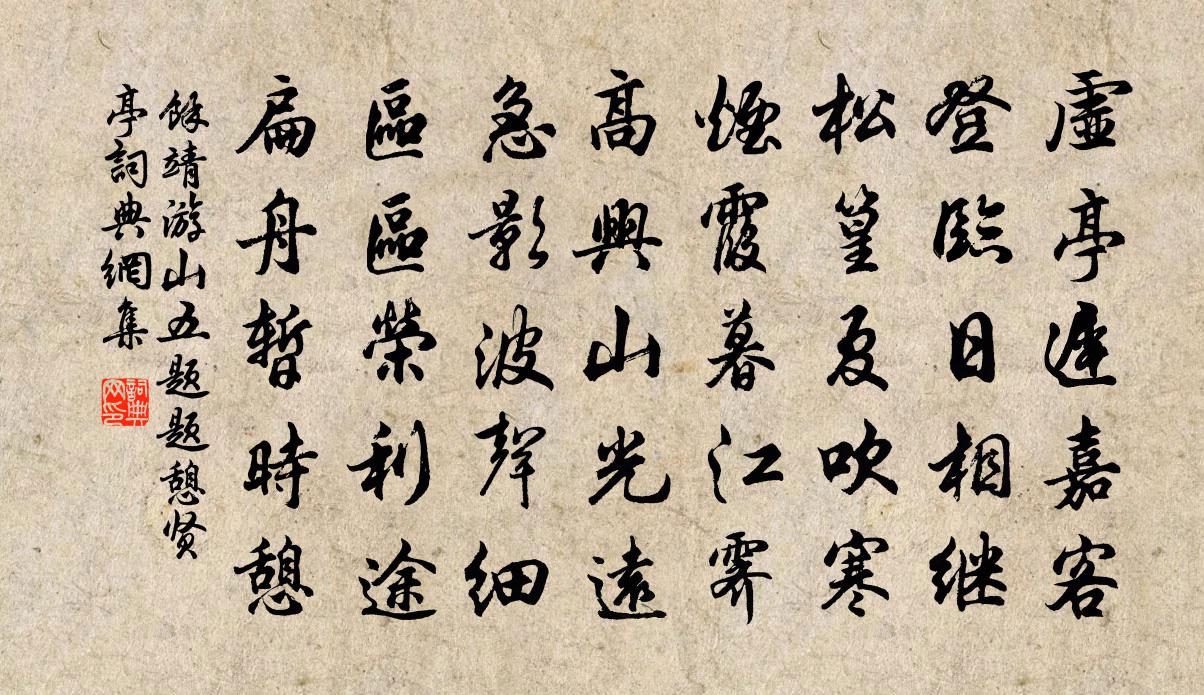 虛亭遲嘉客
登臨日相继
松篁夏吹寒
煙霞暮江霽
高興山光遠
急影波聲細
區區榮利途
扁舟暫時憩
餘靖游山五题题憩贤
亭詞典網集
詞典
网印